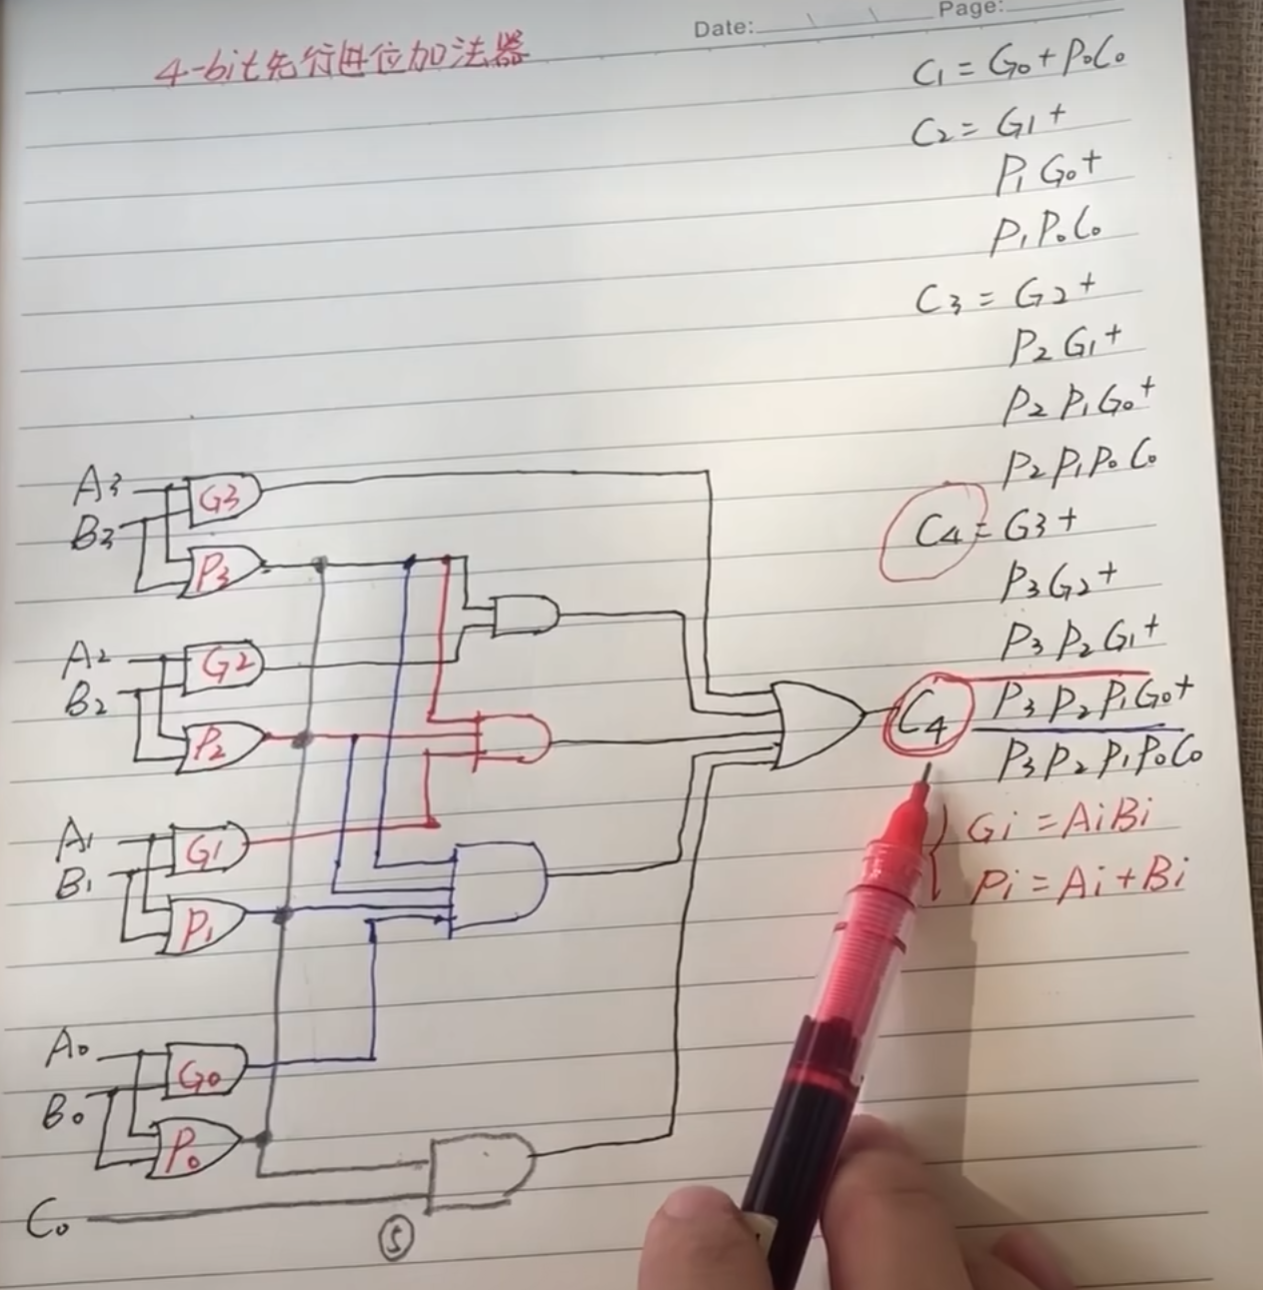 Date: \ \ Page:
4-bit先行进位加法器
C₁ = G₀ + P₀C₀
C₂ = G₁ +
P₁G₀ +
P₁P₀C₀
C₃ = G₂ +
P₂G₁ +
P₂P₁G₀ +
P₂P₁P₀C₀
C₄ = G₃ +
P₃G₂ +
P₃P₂G₁ +
P₃P₂P₁G₀ +
P₃P₂P₁P₀C₀
Gi = AiBi
Pi = Ai + Bi
A₃
B₃
G₃
P₃
A₂
B₂
G₂
P₂
C₄
A₁
B₁
G₁
P₁
A₀
B₀
G₀
P₀
C₀
⑤